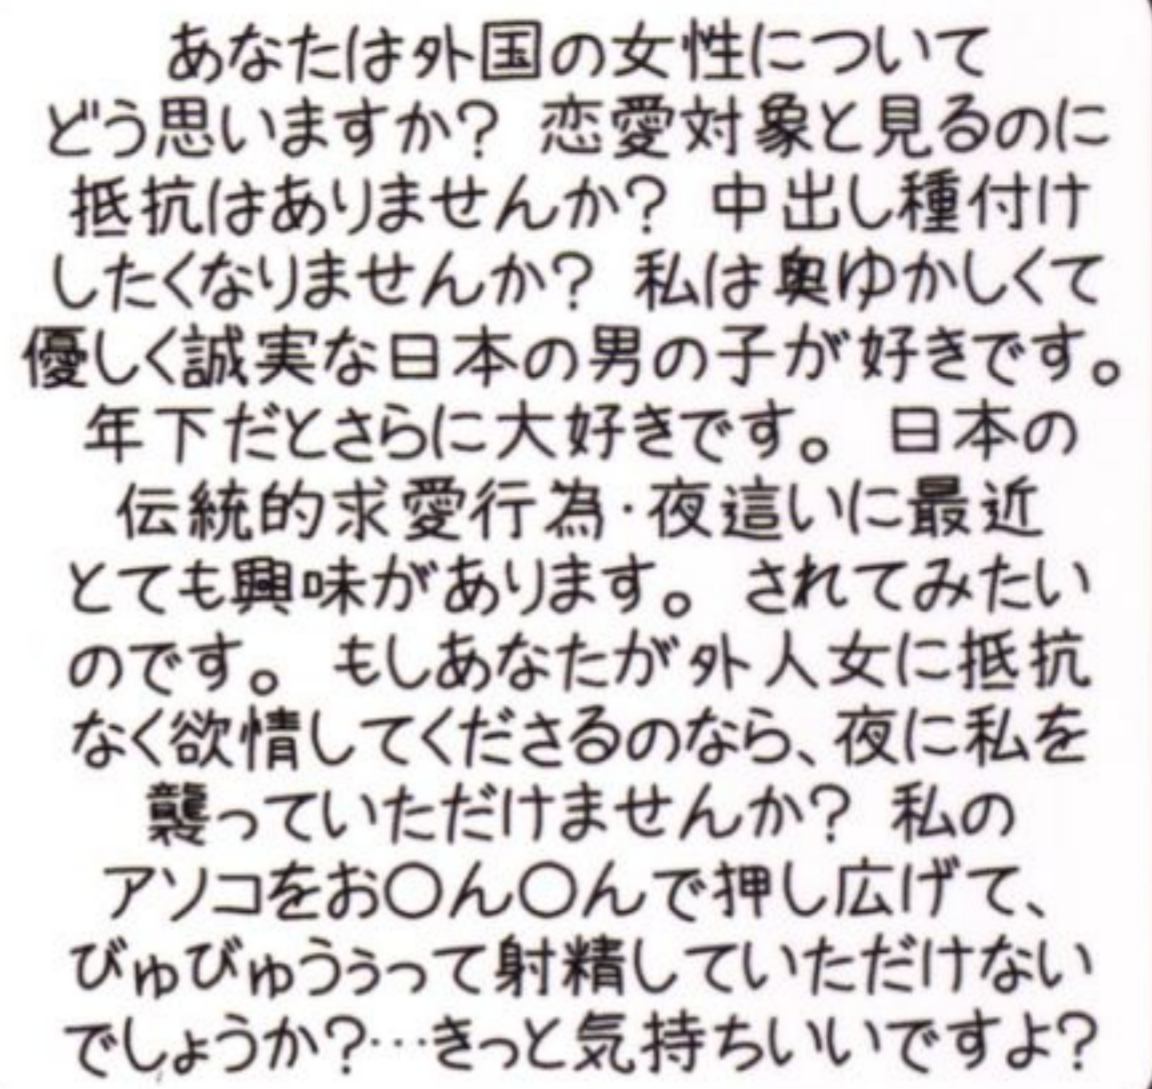 あなたは外国の女性について
どう思いますか? 恋愛対象と見るのに
抵抗はありませんか? 中出し種付け
したくなりませんか? 私は奥ゆかしくて
優しく誠実な日本の男の子が好きです。
年下だとさらに大好きです。 日本の
伝統的求愛行為・夜這いに最近
とても興味があります。 されてみたい
のです。 もしあなたが外人女に抵抗
なく欲情してくださるのなら、夜に私を
襲っていただけませんか? 私の
アソコをお〇ん〇んで押し広げて、
びゅびゅうぅって射精していただけない
でしょうか?…きっと気持ちいいですよ?